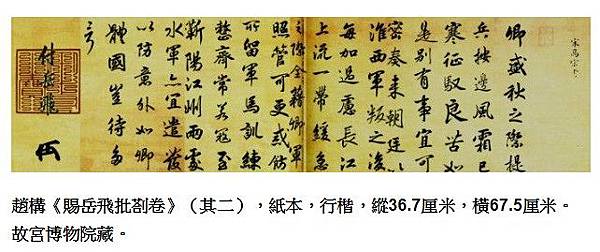 宋高宗
卿盛秋之際提
兵按邊風霜已
寒征馭良苦如
是別有事宜可
密奏來朝廷以
淮西軍叛之後
每加過慮長江
上流一帶緩急
之際全藉卿軍
照管可更戒飭
所留軍馬訓練
整齊常若寇至
蘄陽江州兩處
水軍亦宜遣發
以防意外如卿
體國豈待多
言
付岳飛
趙構《賜岳飛批劄卷》（其二），紙本，行楷，縱36.7厘米，橫67.5厘米。
故宮博物院藏。